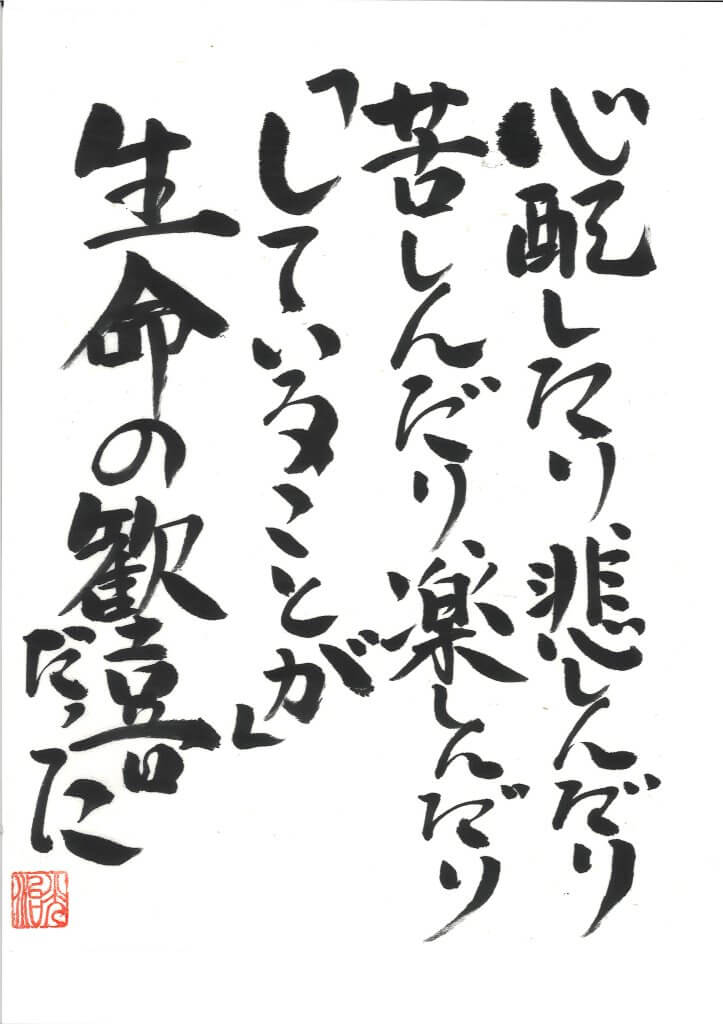 心配したり、悲しんだり
苦しんだり、楽しんだり
「していることが」
生命の歓喜
だった